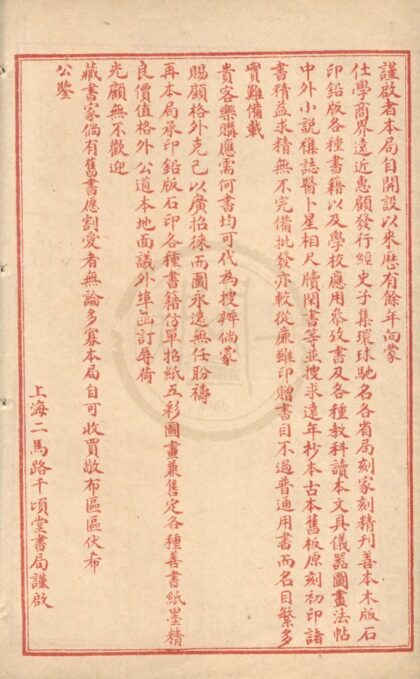 謹啟者本局自開設以來歷有餘年向蒙
仕學商界遠近惠顧發行經史子集環球馳名各省局刻家刻精刊善本木版石
印鉛版各種書籍以及學校應用參攷書及各種教科讀本文具儀器圖畫法帖
中外小説襍誌醫卜星相尺牘閑書等並搜求遠年抄本古本舊板原刻初印諸
書精益求精無不完備批發亦較從廉雖印贈書目不過普通用書而名目繁多
實難備載
貴客樂購應需何書均可代為搜辦倘蒙
賜顧格外克己以廣招徠而圖永遠無任盼禱
再本局承印鉛版石印各種書籍仿單招紙五彩圖畫兼售定各種善書紙墨精
良價值格外公道本地面議外埠函訂辱荷
光顧無不歡迎
藏書家倘有舊書應割愛者無論多寡本局自可收買敬布區區伏希
公鑒
上海二馬路千頃堂書局謹啟